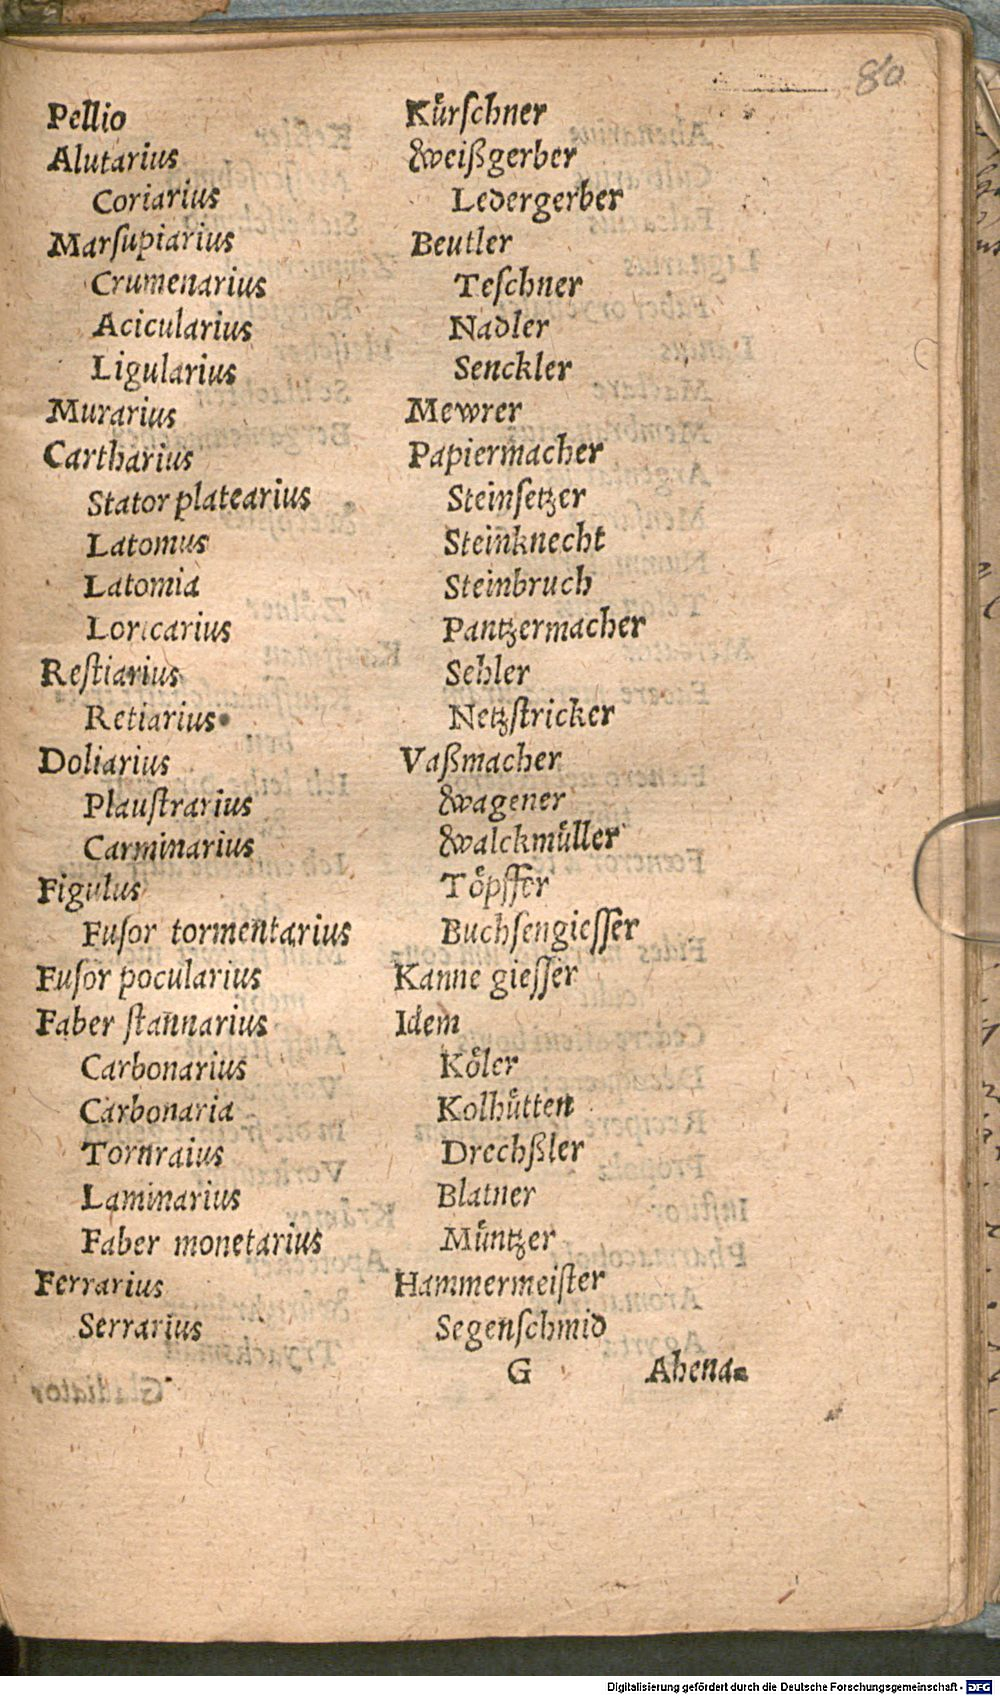 80
Pellio Kůrſchner
Alutarius Weißgerber
Coriarius Ledergerber
Marſupiarius Beutler
Crumenarius Teſchner
Acicularius Nadler
Ligularius Senckler
Murarius Mewrer
Cartharius Papiermacher
Stator platearius Steinſetzer
Latomus Steinknecht
Latomia Steinbruch
Loricarius Pantzermacher
Reſtiarius Sehler
Retiarius Netzſtricker
Doliarius Vaßmacher
Plauſtrarius Wagener
Carminarius Walckmůller
Figulus Tőpffer
Fuſor tormentarius Buchſengieſſer
Fuſor pocularius Kanne gieſſer
Faber ſtannarius Idem
Carbonarius Kőler
Carbonaria Kolhůtten
Tornraius Drechßler
Laminarius Blatner
Faber monetarius Můntzer
Ferrarius Hammermeiſter
Serrarius Segenſchmid
G Ahena=
Digitalisierung gefördert durch die Deutsche Forschungsgemeinschaft - DFG